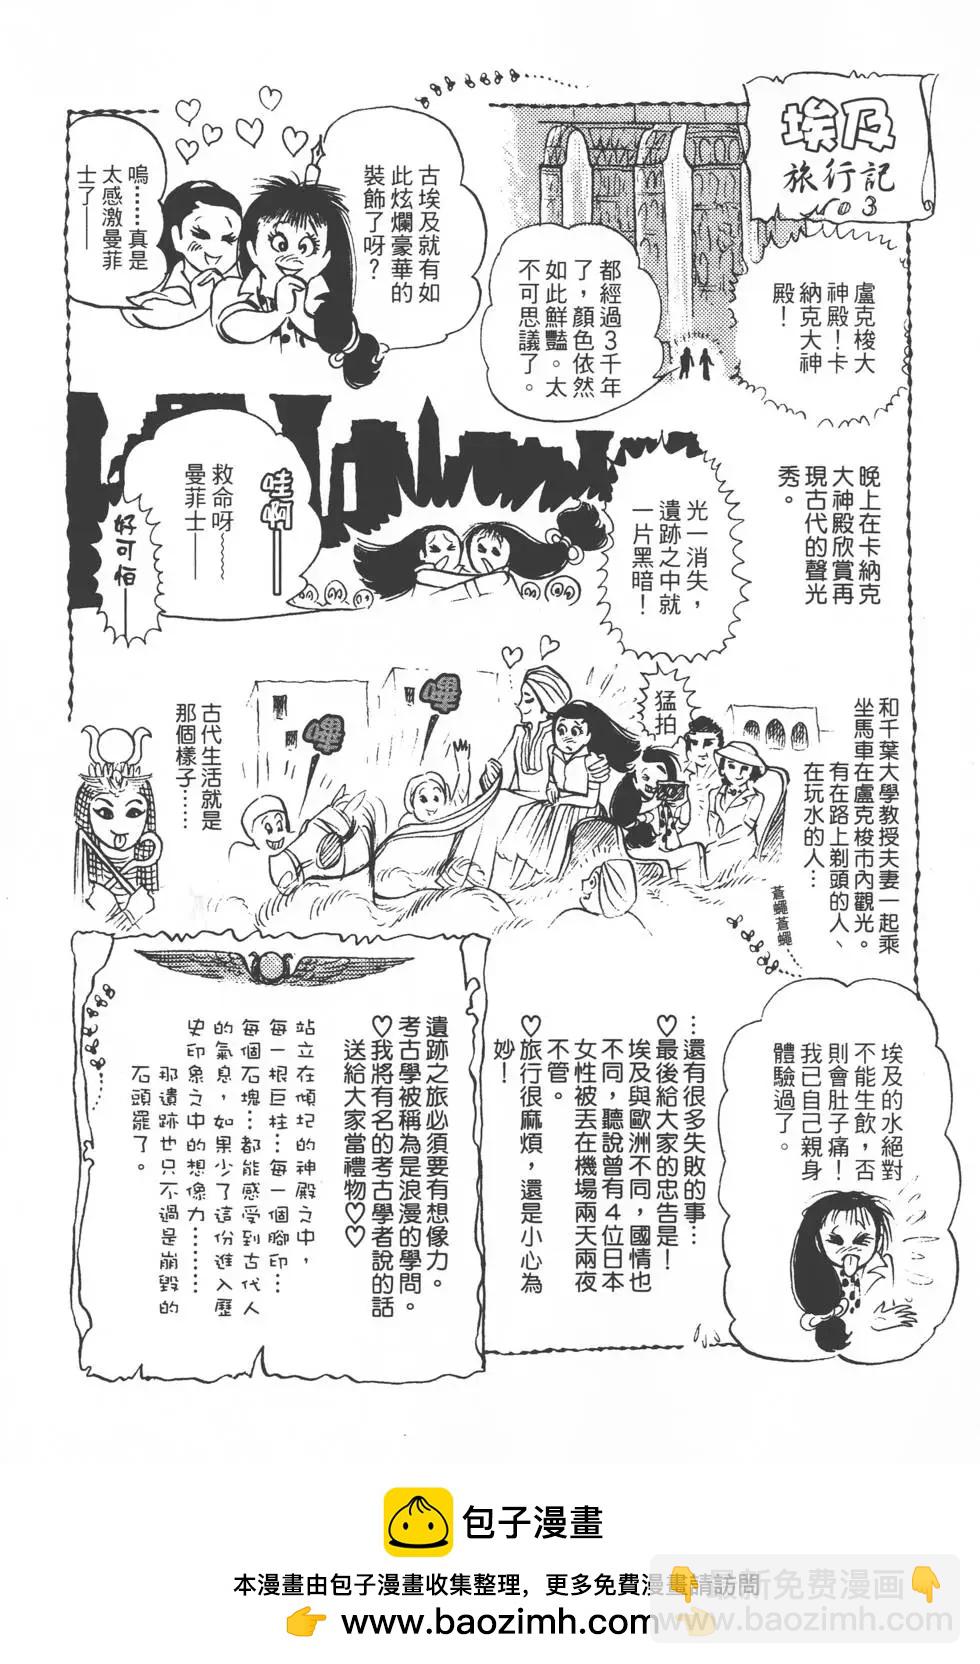 埃及
旅行記
NO3
盧克梭大
神殿！卡
納克大神
殿！
都經過3千年
了，顏色依然
如此鮮豔。太
不可思議了。
古埃及就有如
此炫爛豪華的
裝飾了呀？
嗚……真是
太感激曼菲
士了——
晚上在卡納克
大神殿欣賞再
現古代的聲光
秀。
光一消失，
遺跡之中就
一片黑暗！
哇啊——
救命呀～
曼菲士——
好可怕——
和千葉大學教授夫妻一起乘
坐馬車在盧克梭市內觀光。
有在路上剃頭的人、
在玩水的人…
猛拍
古代生活就是
那個樣子……
蒼蠅蒼蠅
埃及的水絕對
不能生飲，否
則會肚子痛！
我已自己親身
體驗過了。
…還有很多失敗的事…
♡最後給大家的忠告是！
埃及與歐洲不同，國情也
不同，聽說曾有4位日本
女性被丟在機場兩天兩夜
不管。
♡旅行很麻煩，還是小心為
妙！
遺跡之旅必須要有想像力。
考古學被稱為是浪漫的學問。
♡我將有名的考古學者說的話
送給大家當禮物♡♡
站立在傾圮的神殿之中，
每一根巨柱…每一個腳印…
每個石塊…都能感受到古代人
的氣息，如果少了這份進入歷
史印象之中的想像力………
那遺跡也只不過是崩毀的
石頭罷了。
包子漫畫
本漫畫由包子漫畫收集整理，更多免費漫畫請訪問
www.baozimh.com
最新免费漫画
www.baozimh.com